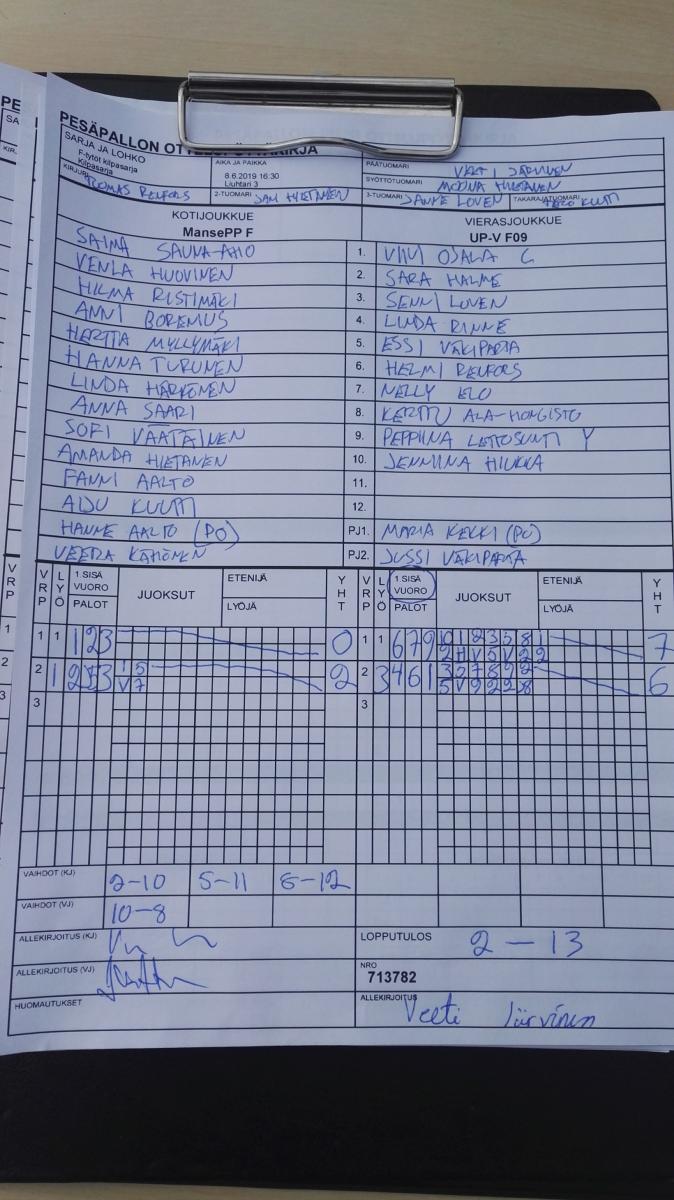 PESÄPALLON OTTELUPÖYTÄKIRJA
SARJA JA LOHKO
F-tytöt kilpasarja
Kilpasarja
AIKA JA PAIKKA
8.6.2019 16:30
Liuhtari 3
PÄÄTUOMARI VEETI JÄRVINEN
SYÖTTÖTUOMARI MOONA HIETANEN
KIRJURI TUOMAS RENFORS
2-TUOMARI SAM HIETANEN
3-TUOMARI SANNE LOVEN
TAKARAJATUOMARI
KOTIJOUKKUE
MansePP F
VIERASJOUKKUE
UP-V F09
SAIMA SAUNA-AHO 1. VIIVI OJALA C
VENLA HUOVINEN 2. SARA HALME
HILMA RISTIMÄKI 3. SENNI LOVEN
ANNI BOREMUS 4. LINDA RINNE
HERTTA MYLLYMÄKI 5. ESSI VÄKIPARTA
HANNA TURUNEN 6. HELMI RENFORS
LINDA HÄRKÖNEN 7. NELLY ELO
ANNA SAARI 8. KERTTU ALA-HONGISTO
SOFI VÄÄTÄINEN 9. PEPPIINA
AMANDA HIETANEN 10. JENNIINA HIUKKA
FANNI AALTO 11.
AIJU KUUTTI 12.
HANNE AALTO (PO) PJ1. MARIA KEKKI (PO)
VEERA KÄHÖNEN PJ2. JUSSI VÄKIPARTA
VRP LYÖ 1 SISÄ VUORO PALOT JUOKSUT ETENIJÄ LYÖJÄ YHT VRP LYÖ 1 SISÄ VUORO PALOT JUOKSUT ETENIJÄ LYÖJÄ YHT
1 1 1 2 3 0 1 1 6 7 9 7
2 1 2 3 2 2 3 4 6 1 6
3 3
VAIHDOT (KJ) 2-10 5-11 6-12
VAIHDOT (VJ) 10-8
ALLEKIRJOITUS (KJ)
LOPPUTULOS 2 - 13
ALLEKIRJOITUS (VJ)
NRO
713782
HUOMAUTUKSET
ALLEKIRJOITUS Veeti Järvinen